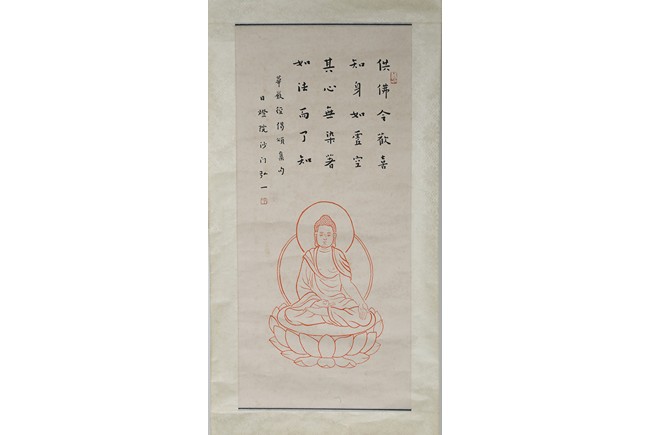 供佛令歡喜
知身如虛空
其心無染著
如法而了知
華嚴經偈頌集句
日燈院沙門弘一